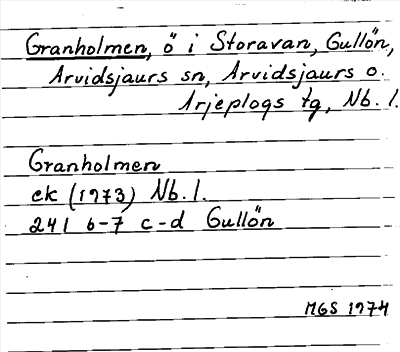 Granholmen, ö i Storavan, Gullön,
Arvidsjaurs sn, Arvidsjaurs o.
Arjeplogs tg, Nb. l.
Granholmen
ek (1973) Nb. l.
241 6-7 c-d Gullön
MGS 1974